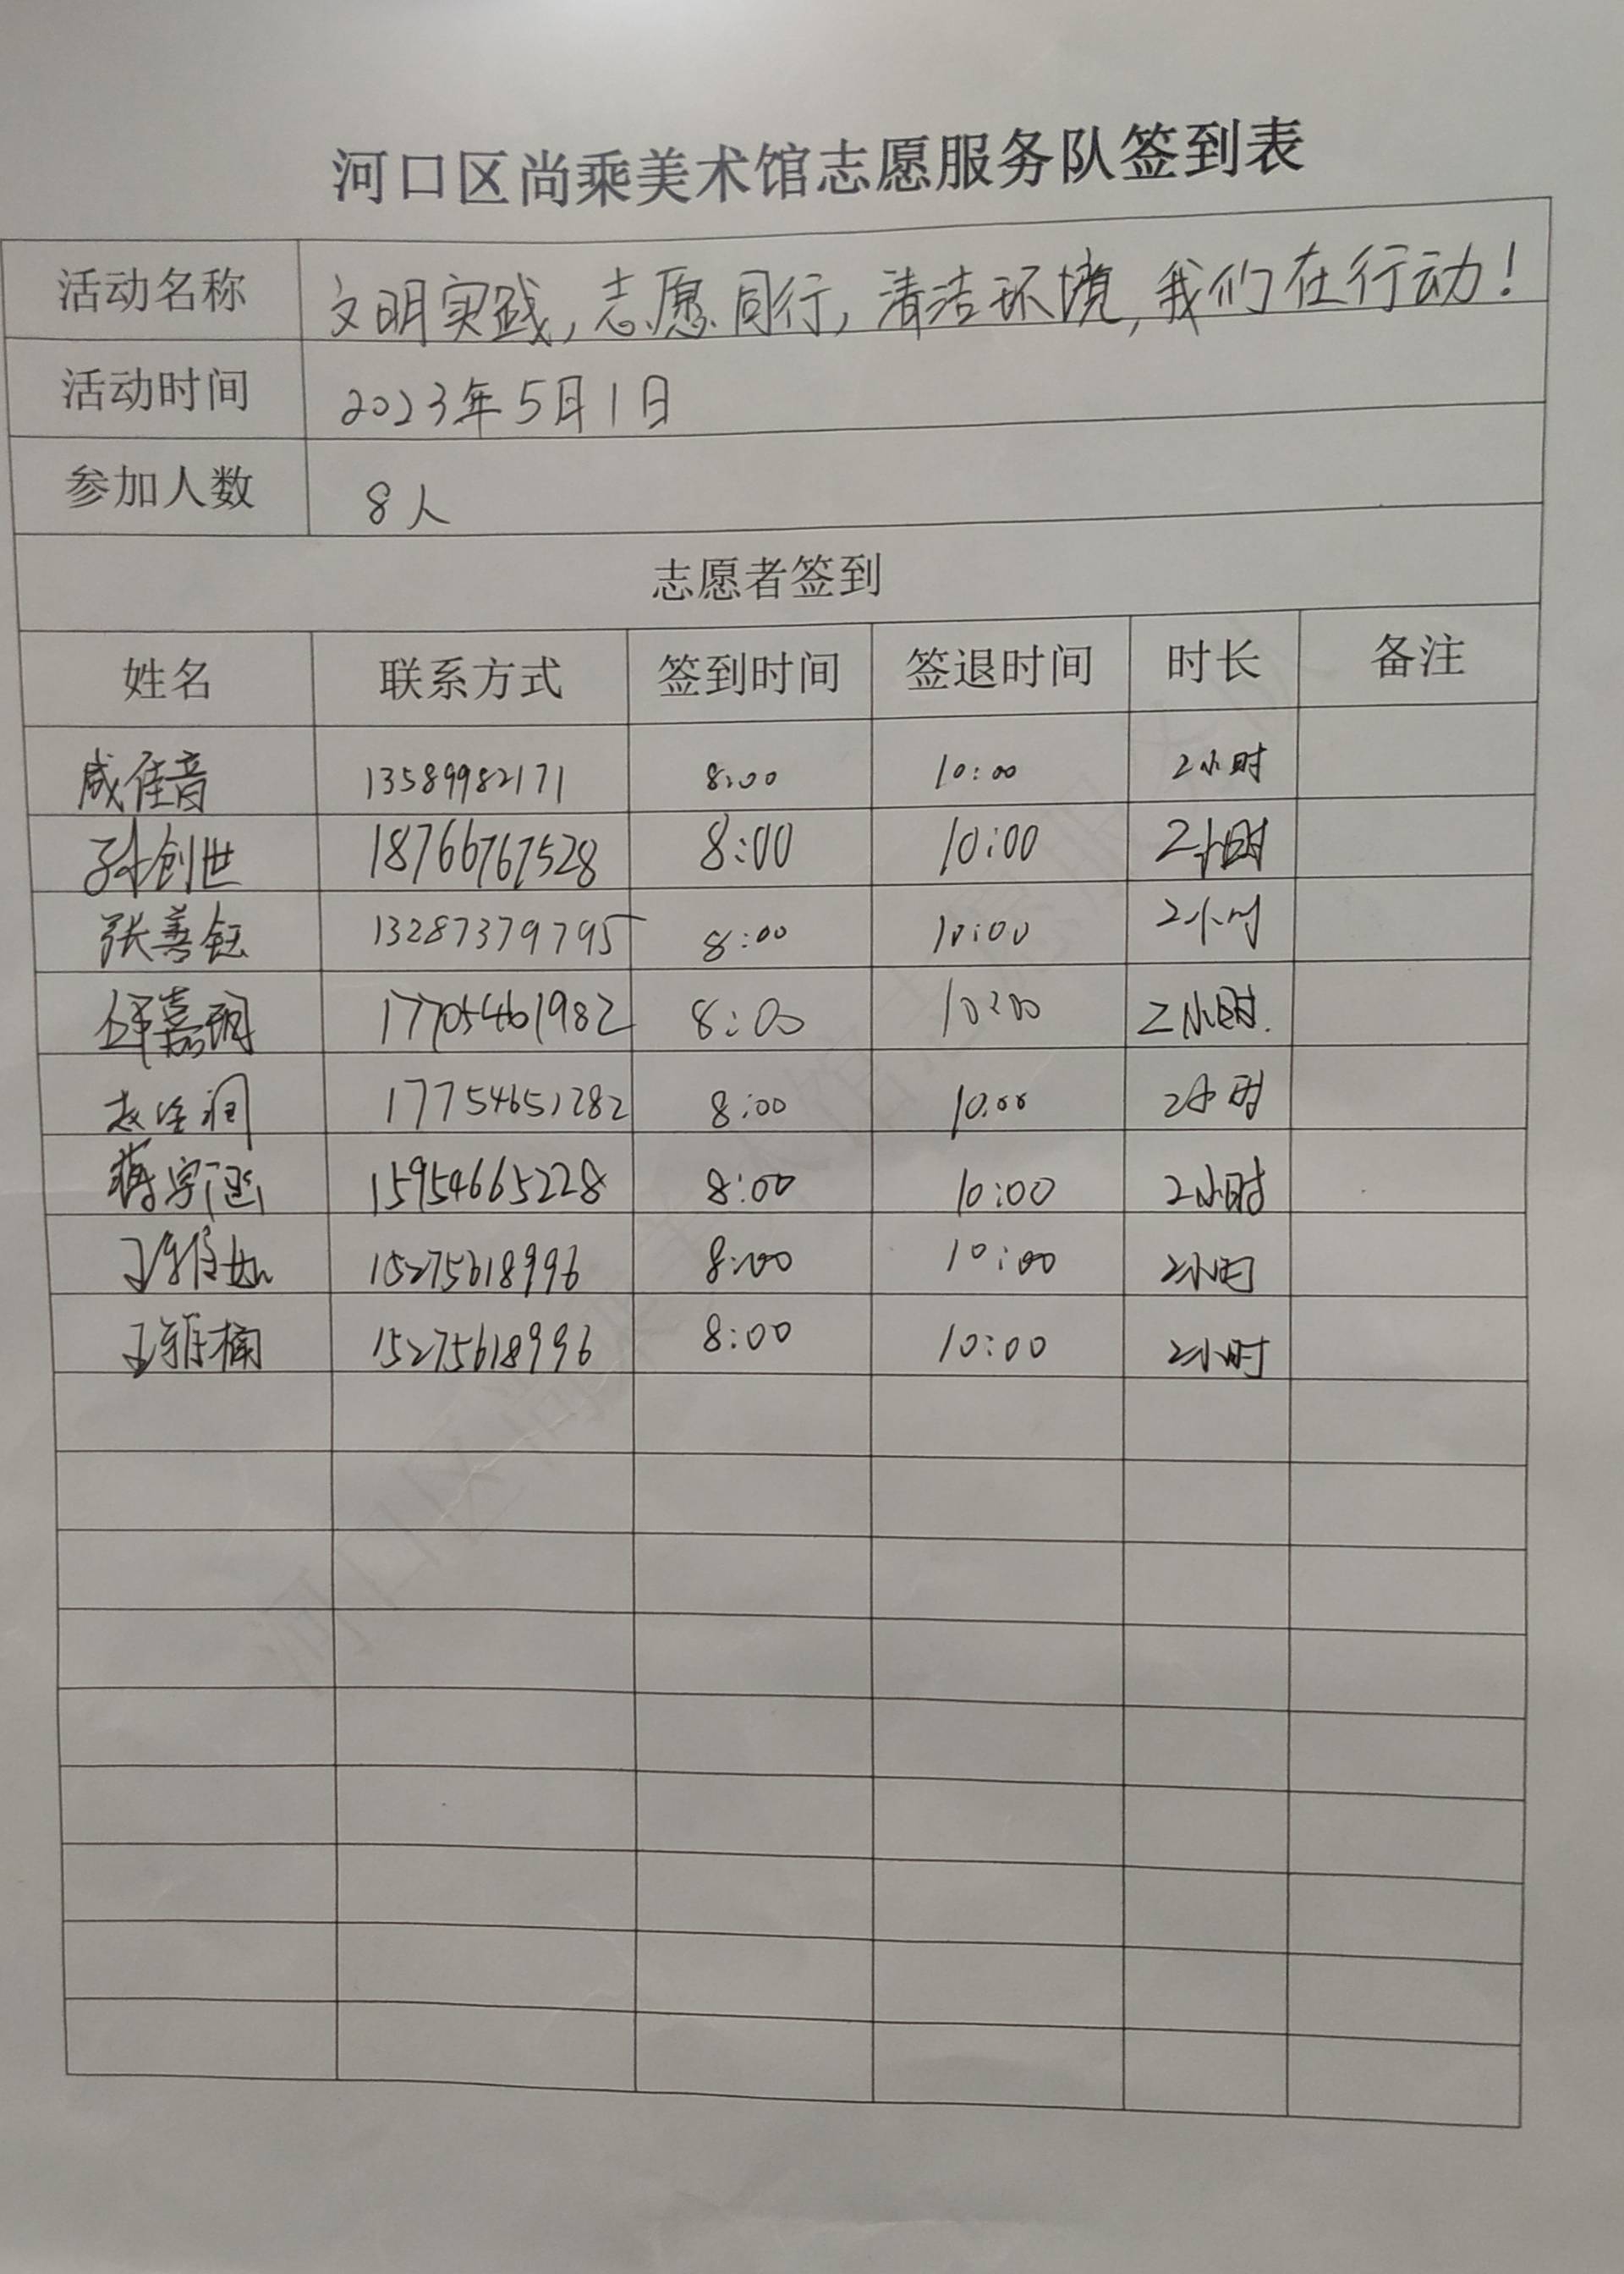 河口区尚乘美术馆志愿服务队签到表
活动名称 文明实践,志愿同行,清洁环境,我们在行动!
活动时间 2023年5月1日
参加人数 8人
志愿者签到
姓名 联系方式 签到时间 签退时间 时长 备注
咸佳音 13589982171 8:00 10:00 2小时
孙创世 18766767528 8:00 10:00 2小时
张善钰 13287379795 8:00 10:00 2小时
嘉 17705461982 8:00 10:00 2小时.
赵 润 17754651282 8:00 10:00 2小时
蒋宇涵 15954665228 8:00 10:00 2小时
王雅如 15275618996 8:00 10:00 2小时
王雅楠 15275618996 8:00 10:00 2小时
河口区尚乘美术馆志愿服务队